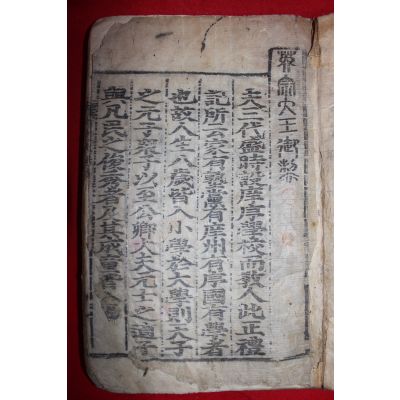 英宗大王御製
夫三代盛時設庠序學校而教人此正禮
記所云家有塾黨有庠州有序國有學者
也故人生八歲皆入小學於大學則天子
之元子衆子以至公卿大夫元士之適子
與凡民之俊秀者及其成童皆入焉